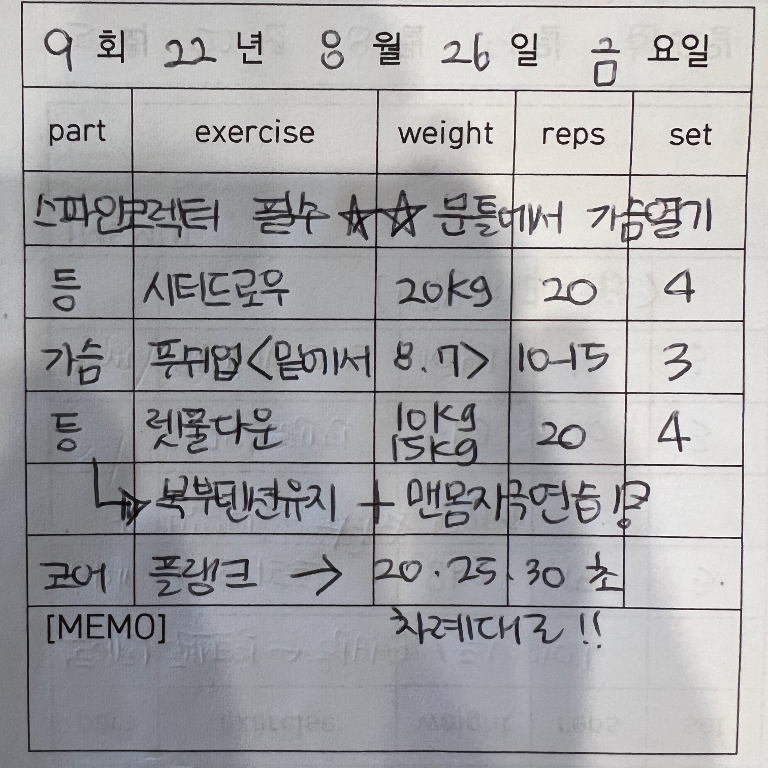 9 회 22 년 8 월 26 일 금 요일
part exercise weight reps set
스파인코렉터 필수 ☆☆ 문틀에서 가슴열기
등 시티드로우 20kg 20 4
가슴 푸쉬업 <밑에서 8.7> 10-15 3
등 렛풀다운 10kg 15kg 20 4
↳ 복부텐션유지 + 맨몸자극연습!?
코어 플랭크 → 20.25.30 초
[MEMO] 차례대로 !!